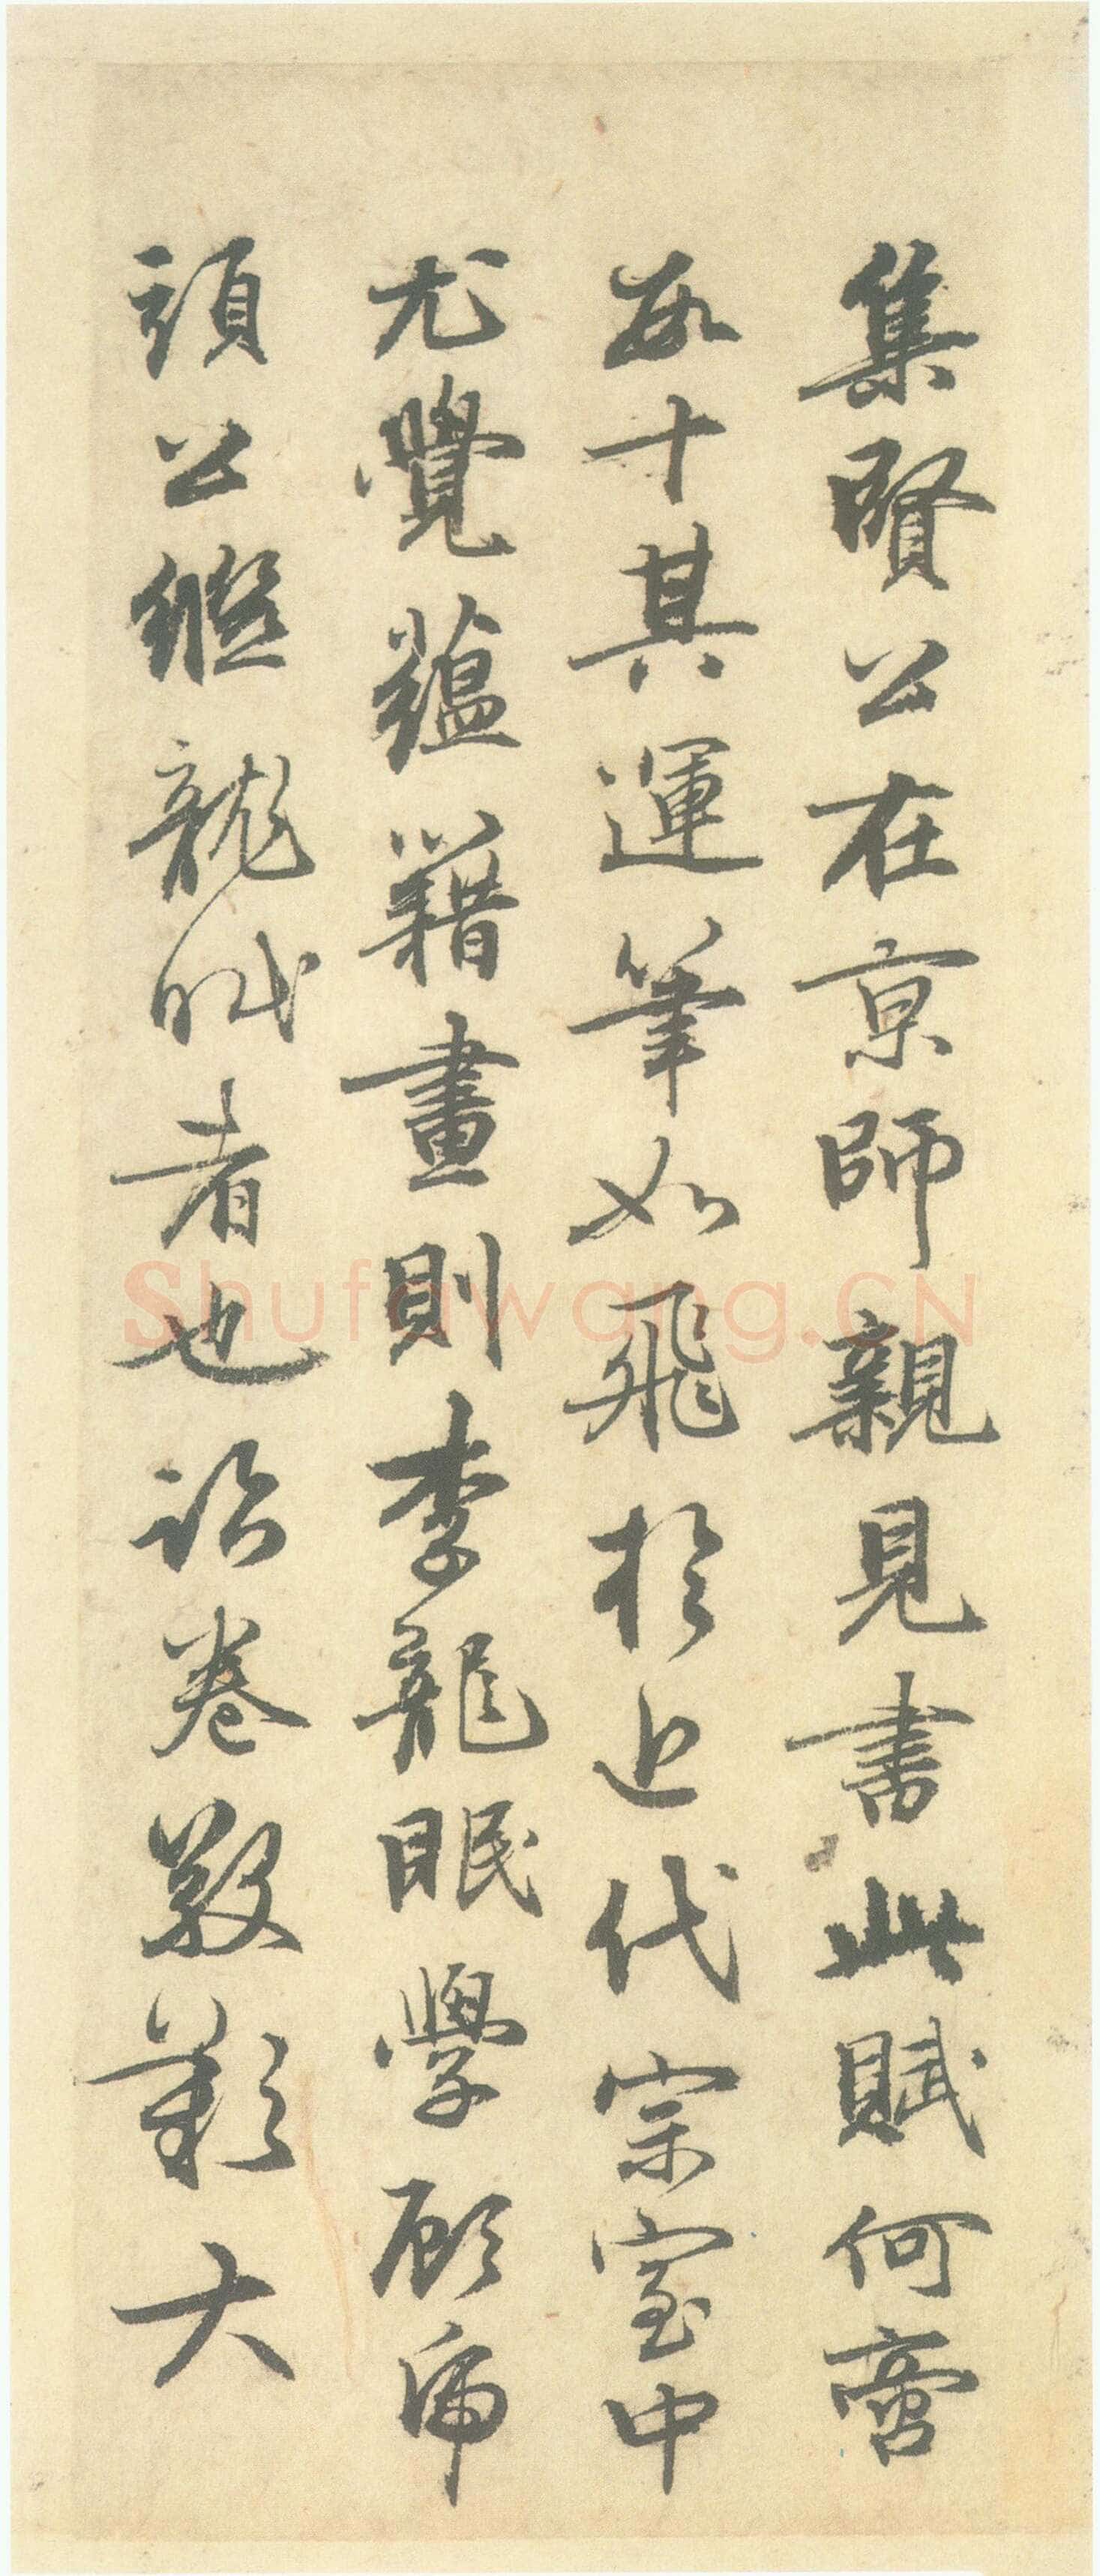 集賢公在京師親見書此賦何啻
數十其運筆如飛於近代宗室中
尤覺蘊籍畫則李龍眠學顧虎
頭公繼龍眠者也卷大
Shufawang.CN